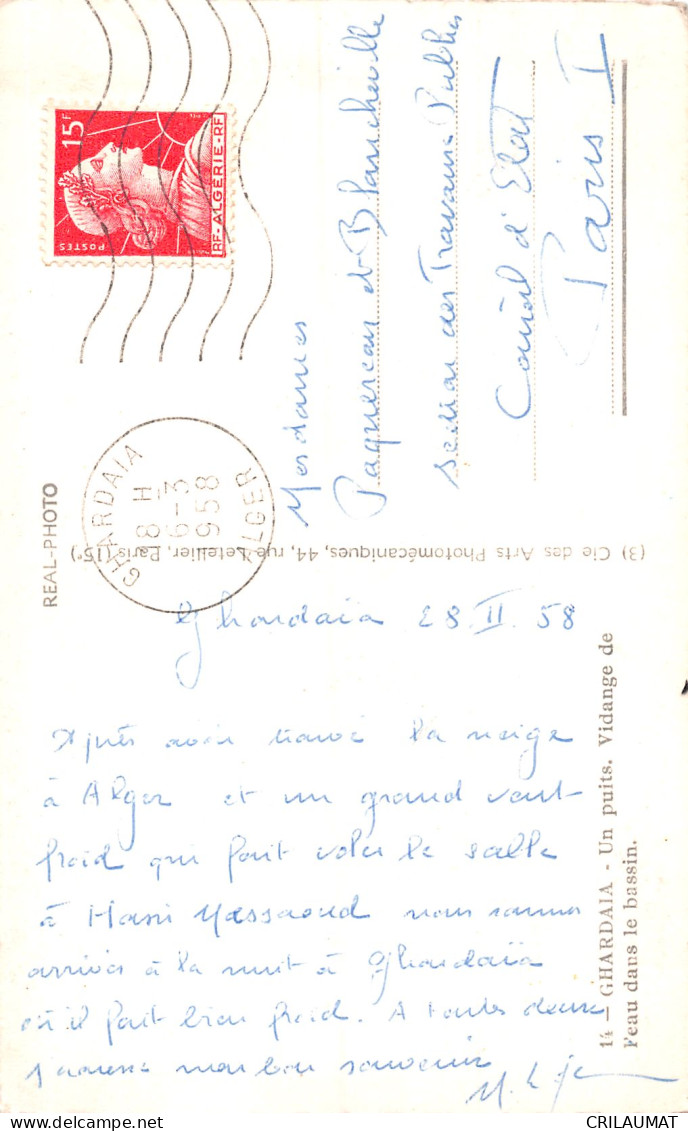 15F
POSTES
RF-ALGERIE-RF
GHARDAIA
18 H
6-3
1958
ALGER
REAL-PHOTO
Mesdames
Paquereau et Blancheville
Section des Travaux Publics
Conseil d'Etat
Paris I
(3) Cie des Arts Photomécaniques, 44, rue Letellier, Paris (15e)
14 — GHARDAIA - Un puits. Vidange de
l'eau dans le bassin.
Ghardaïa 28.II.58
Après avoir trouvé la neige
à Alger et un grand vent
froid qui fait voler le sable
à Hassi Messaoud nous sommes
arrivés à la nuit à Ghardaïa
où il fait bien froid. A toutes deux
j'adresse mon bon souvenir
CRILAUMAT